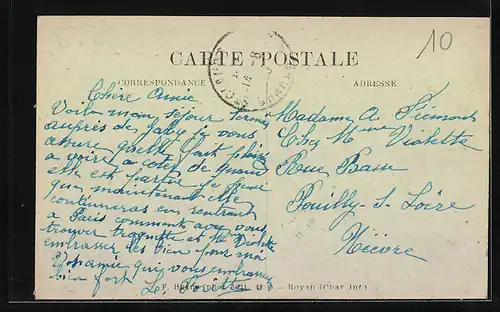 10
CARTE POSTALE
CORRESPONDANCE
ADRESSE
Chère Amie
Voila mon séjour terminé
auprès de Gaby je vous
assure quelle fait plaisir
a voire a coté de quand
elle est partie je pense
que maintenant elle
continueras en rentrant
a Paris comment avez vous
trouver
embrasser les bien pour moi
qui vous embrasse
bien fort
Madame A Piémont
Chez Mme Violette
Rue Basse
Pouilly s. Loire
Nièvre
Royan (Char. Inf.)